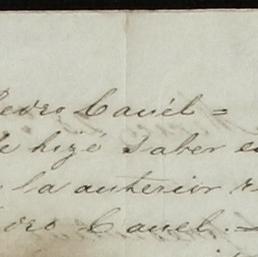 Pedro Cauél =
le hizé saber en
la anterior
Pedro Cauel.